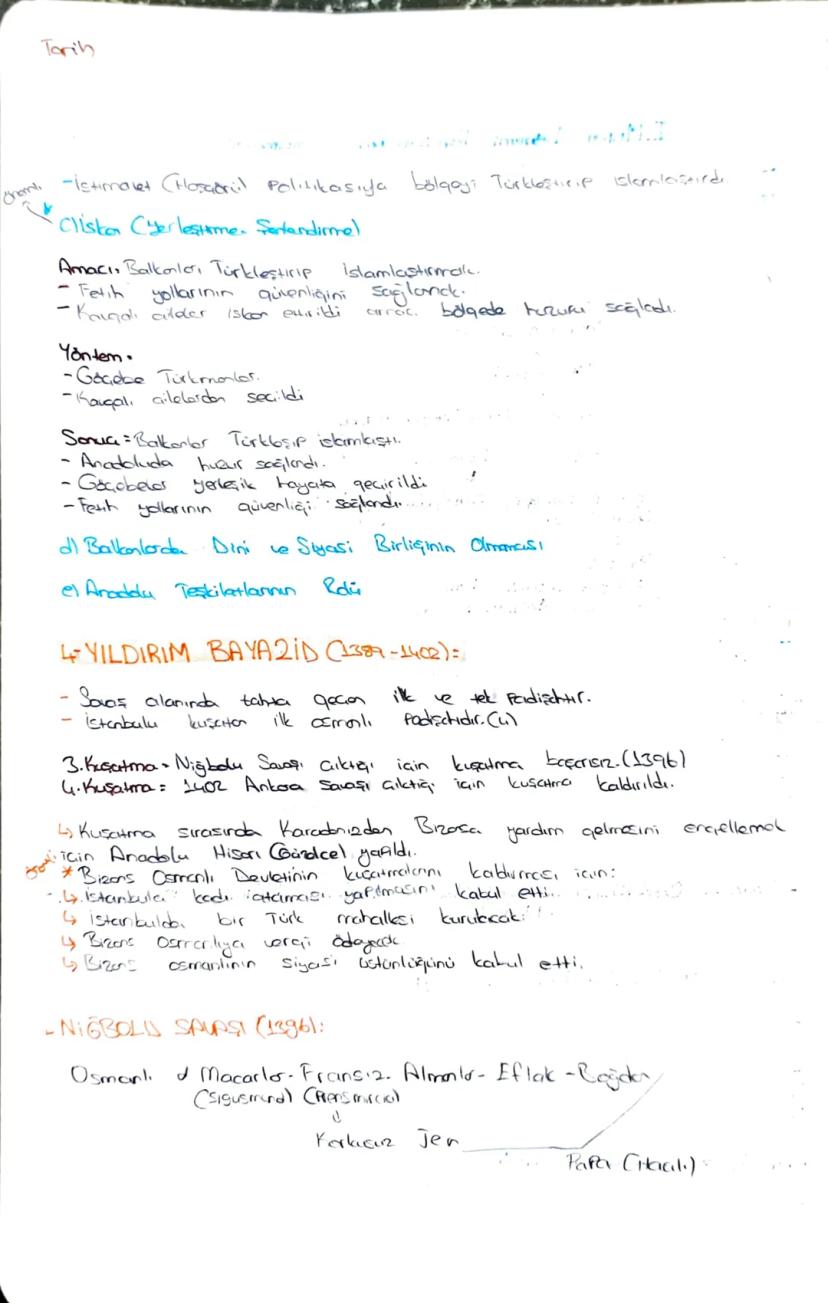 Tarih
-İstimalet (Hoşgörü) Politikasıyla bölgeyi Türkleştirip islamlaştırdı
önemli
c) İskan (Yerleştirme. Şenlendirme)
Amacı. Balkanları Türkleştirip islamlaştırmak.
- Fetih yollarının güvenliğini sağlamak.
- Kavgalı aileler iskan edildi bölgede huzuru sağladı.
Yöntem.
- Göçebe Türkmenler.
- Kavgalı ailelerden seçildi
Sonucu = Balkanlar Türkleşip islamlaştı.
- Anadoluda huzur sağlandı.
- Göçebeler yerleşik hayata geçirildi
- Fetih yollarının güvenliği sağlandı.
d) Balkanlarda Dini ve Siyasi Birliğinin Olmaması
e) Anadolu Teşkilatlarının Rolü
4-YILDIRIM BAYAZİD (1389-1402):
- Savaş alanında tahta geçen ilk ve tek Padişahtır.
- İstanbulu kuşatan ilk osmanlı Padişahıdır. (4)
3.Kuşatma = Niğbolu Savaşı çıktığı için kuşatma başarısız. (1396)
4.Kuşatma = 1402 Ankara savaşı çıktığı için kuşatma kaldırıldı.
↳ Kuşatma sırasında Karadenizden Bizansa yardım gelmesini engellemek
için Anadolu Hisarı (Güzelce) yapıldı.
* Bizans Osmanlı Devletinin kuşatmalarını kaldırması için:
↳ İstanbula kadı ataması yapılmasını kabul etti.
↳ İstanbulda bir Türk mahallesi kurulacak.
↳ Bizans Osmanlıya vergi ödeyecek
↳ Bizans osmanlının siyasi üstünlüğünü kabul etti.
- NİĞBOLU SAVAŞI (1396):
Osmanlı Macarlar-Fransız. Almanlar-Eflak-Boğdan
(Sigusmund)
Korkusuz Jen
Papa (Haçlı)